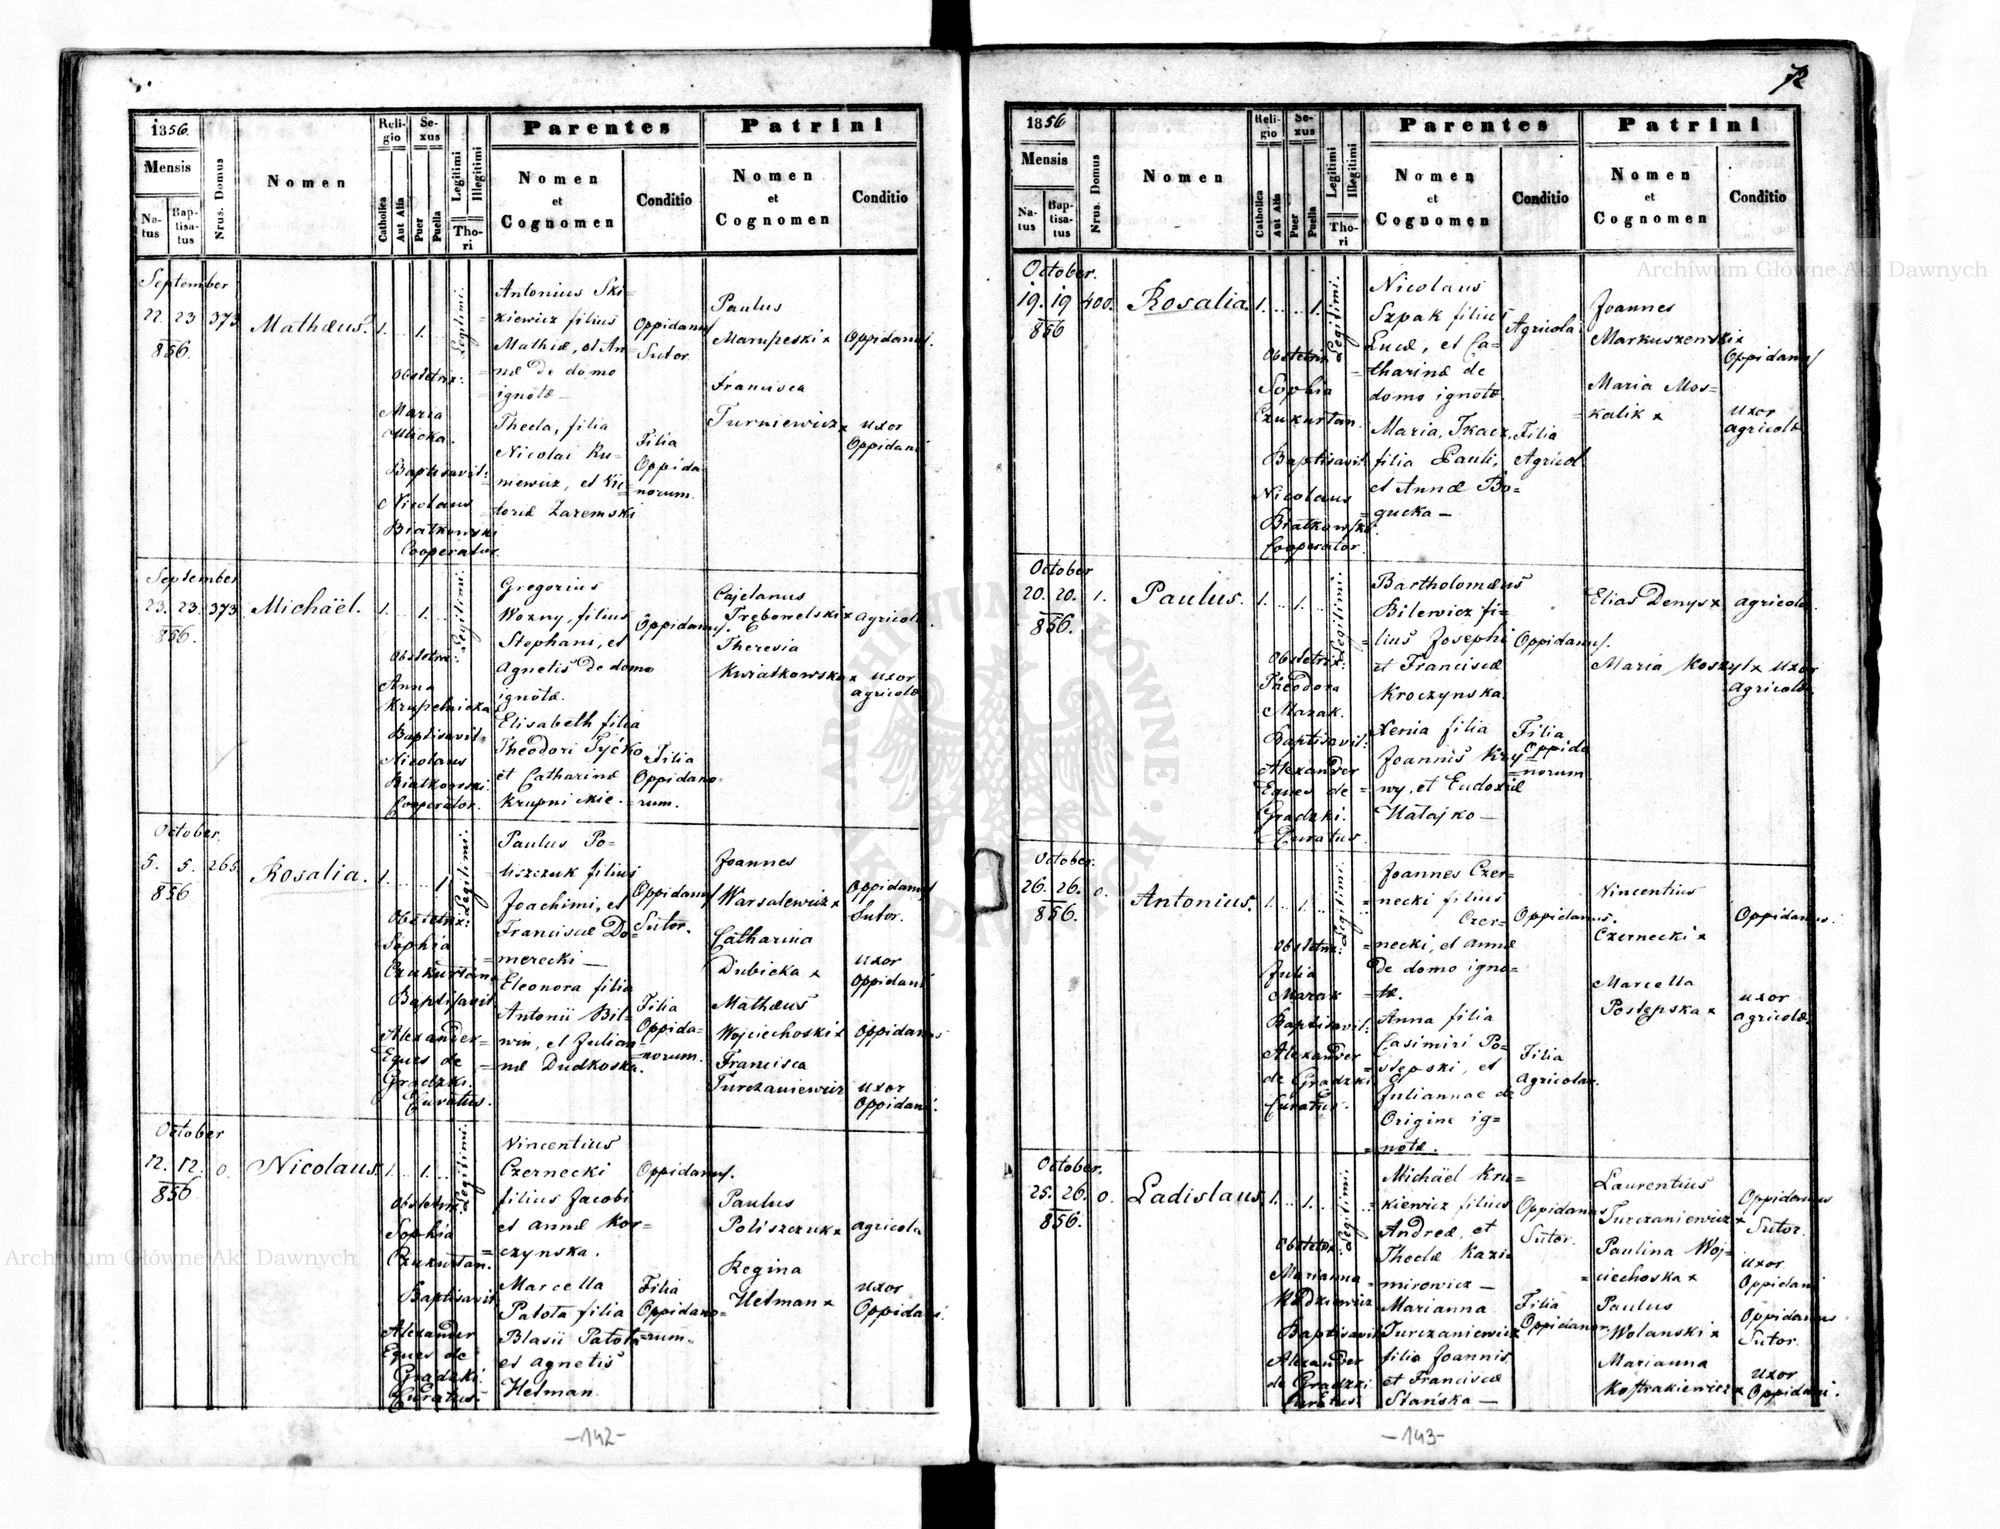 1856.
Mensis
Natus
Baptisatus
Nrus. Domus
Nomen
Religio
Catholica
Aut Alia
Sexus
Puer
Puella
Legitimi
Illegitimi
Thori
Parentes
Nomen
et
Cognomen
Conditio
Patrini
Nomen
et
Cognomen
Conditio
September
22. 23 373
856.
Mathæus.
1. 1.
Legitimi.
Obstetrix:
Maria
Baptisavit:
Nicolaus
Białkowski
Cooperator.
Antonius Ski=
kiewicz filius
Mathiæ, et An=
næ de domo
ignotæ —
Thecla, filia
Nicolai Ku=
niewicz, et Vic=
toriæ Zaremski
Oppidanus
Sutor.
Filia
Oppida=
norum.
Paulus
Marupeski x
Francisca
Turniewicz x
Oppidanus.
uxor
Oppidani
September
23. 23. 373
856.
Michäel.
1. 1.
Legitimi.
Obstetrix
Anna
Krupelnicka
Baptisavit.
Nicolaus
Białkowski.
Cooperator.
Gregorius
Wozny, filius
Stephani, et
Agnetis de domo
ignotæ.
Elisabeth filia
Theodori Tyćko
et Catharinæ
Krupnickie.
Oppidanus.
Filia
Oppidano=
rum.
Cajetanus
Trebowelski x
Theresia
Kwiatkowska x
agricola.
uxor
agricolæ
October.
5. 5. 265
856
Rosalia.
1. 1.
Legitimi.
Obstetrix:
Sophia
Czukurtan
Baptisavit.
Alexander
Eques de
Gradzki.
Curatus.
Paulus Po=
liszczuk filius
Joachimi, et
Franciscæ Do=
merecki —
Eleonora filia
Antonii Bil=
win, et Julian=
næ Dudkoska.
Oppidanus
Sutor.
Filia
Oppida=
norum.
Joannes
Warsalewicz x
Catharina
Dubicka x
Mathæus
Wojciechoski x
Francisca
Turczaniewicz
Oppidanus
Sutor.
uxor
Oppidani
Oppidanus
uxor
Oppidani.
October
12. 12. 0.
856.
Nicolaus.
1. 1.
Legitimi.
Obstetrix
Sophia
Czukurtan.
Baptisavit
Alexander
Eques de
Gradzki.
Curatus.
Vincentius
Czernecki
filius Jacobi
et annæ Kor=
czynska.
Marcella
Patota filia
Blasii Patota
et agnetis
Helman.
Oppidanus.
Filia
Oppidano=
rum.
Paulus
Poliszczuk x
Regina
Helman x
agricola
uxor
Oppidani.
-142-
72
1856
Mensis
Natus
Baptisatus
Nrus. Domus
Nomen
Religio
Catholica
Aut Alia
Sexus
Puer
Puella
Legitimi
Illegitimi
Thori
Parentes
Nomen
et
Cognomen
Conditio
Patrini
Nomen
et
Cognomen
Conditio
October.
19. 19 400.
856
Rosalia.
1. 1.
Legitimi.
Obstetrix
Sophia
Czukurtan.
Baptisavit
Nicolaus
Białkowski.
Cooperator.
Nicolaus
Szpak filius
Lucæ, et Ca=
tharinæ de
domo ignotæ.
Maria, Tkacz,
filia Pauli,
et Annæ Bo=
gucka —
Agricola.
Filia
Agricol
Joannes
Markuszewski x
Maria Mos=
kalik x
Oppidanus
uxor
agricolæ
October
20. 20. 1.
856.
Paulus.
1. 1.
Legitimi.
Obstetrix:
Theodora
Mazak.
Baptisavit:
Alexander
Eques de
Gradzki.
Curatus.
Bartholomæus
Bilewicz fi=
lius Josephi
et Franciscæ
Kroczynska.
Xenia filia
Joannis Kry=
wy, et Eudoxiæ
Hatajko —
Oppidanus.
Filia
Oppida
=norum
Elias Denys x
Maria Koszyl x
agricola.
uxor
agricolæ.
October.
26. 26. 0.
856.
Antonius.
1. 1.
Legitimi.
Obstetrix:
Julia
Mazak
Baptisavit:
Alexander
de Gradzki
Curatus.
Joannes Czer=
necki filius
Czer=
necki, et annæ
de domo igno=
tæ.
Anna filia
Casimiri Po=
stępski, et
Juliannae de
Origine ig=
notæ.
Oppidanus.
Filia
agricolar.
Vincentius
Czernecki x
Marcella
Postępska x
Oppidanus.
uxor
agricolæ.
October.
25. 26. 0.
856.
Ladislaus.
1. 1.
Legitimi.
Obstetrix
Marianna
Baptisavit
Alexander
de Gradzki
Curatus.
Michäel Kru=
kiewicz filius
Andreæ, et
Theclæ Kazi=
mirowicz —
Marianna
Turczaniewicz
filia Joannis
et Franciscæ
Stańska —
Oppidanus
Sutor.
Filia
Oppidanor.
Laurentius
Turczaniewicz x
Paulina Woj=
ciechoska x
Paulus
Wolanski x
Marianna
Kostrakiewicz x
Oppidanus
Sutor.
uxor
Oppidani
Oppidanus
Sutor.
uxor
Oppidani.
-143-
Archiwum Główne Akt Dawnych
Archiwum Główne Akt Dawnych